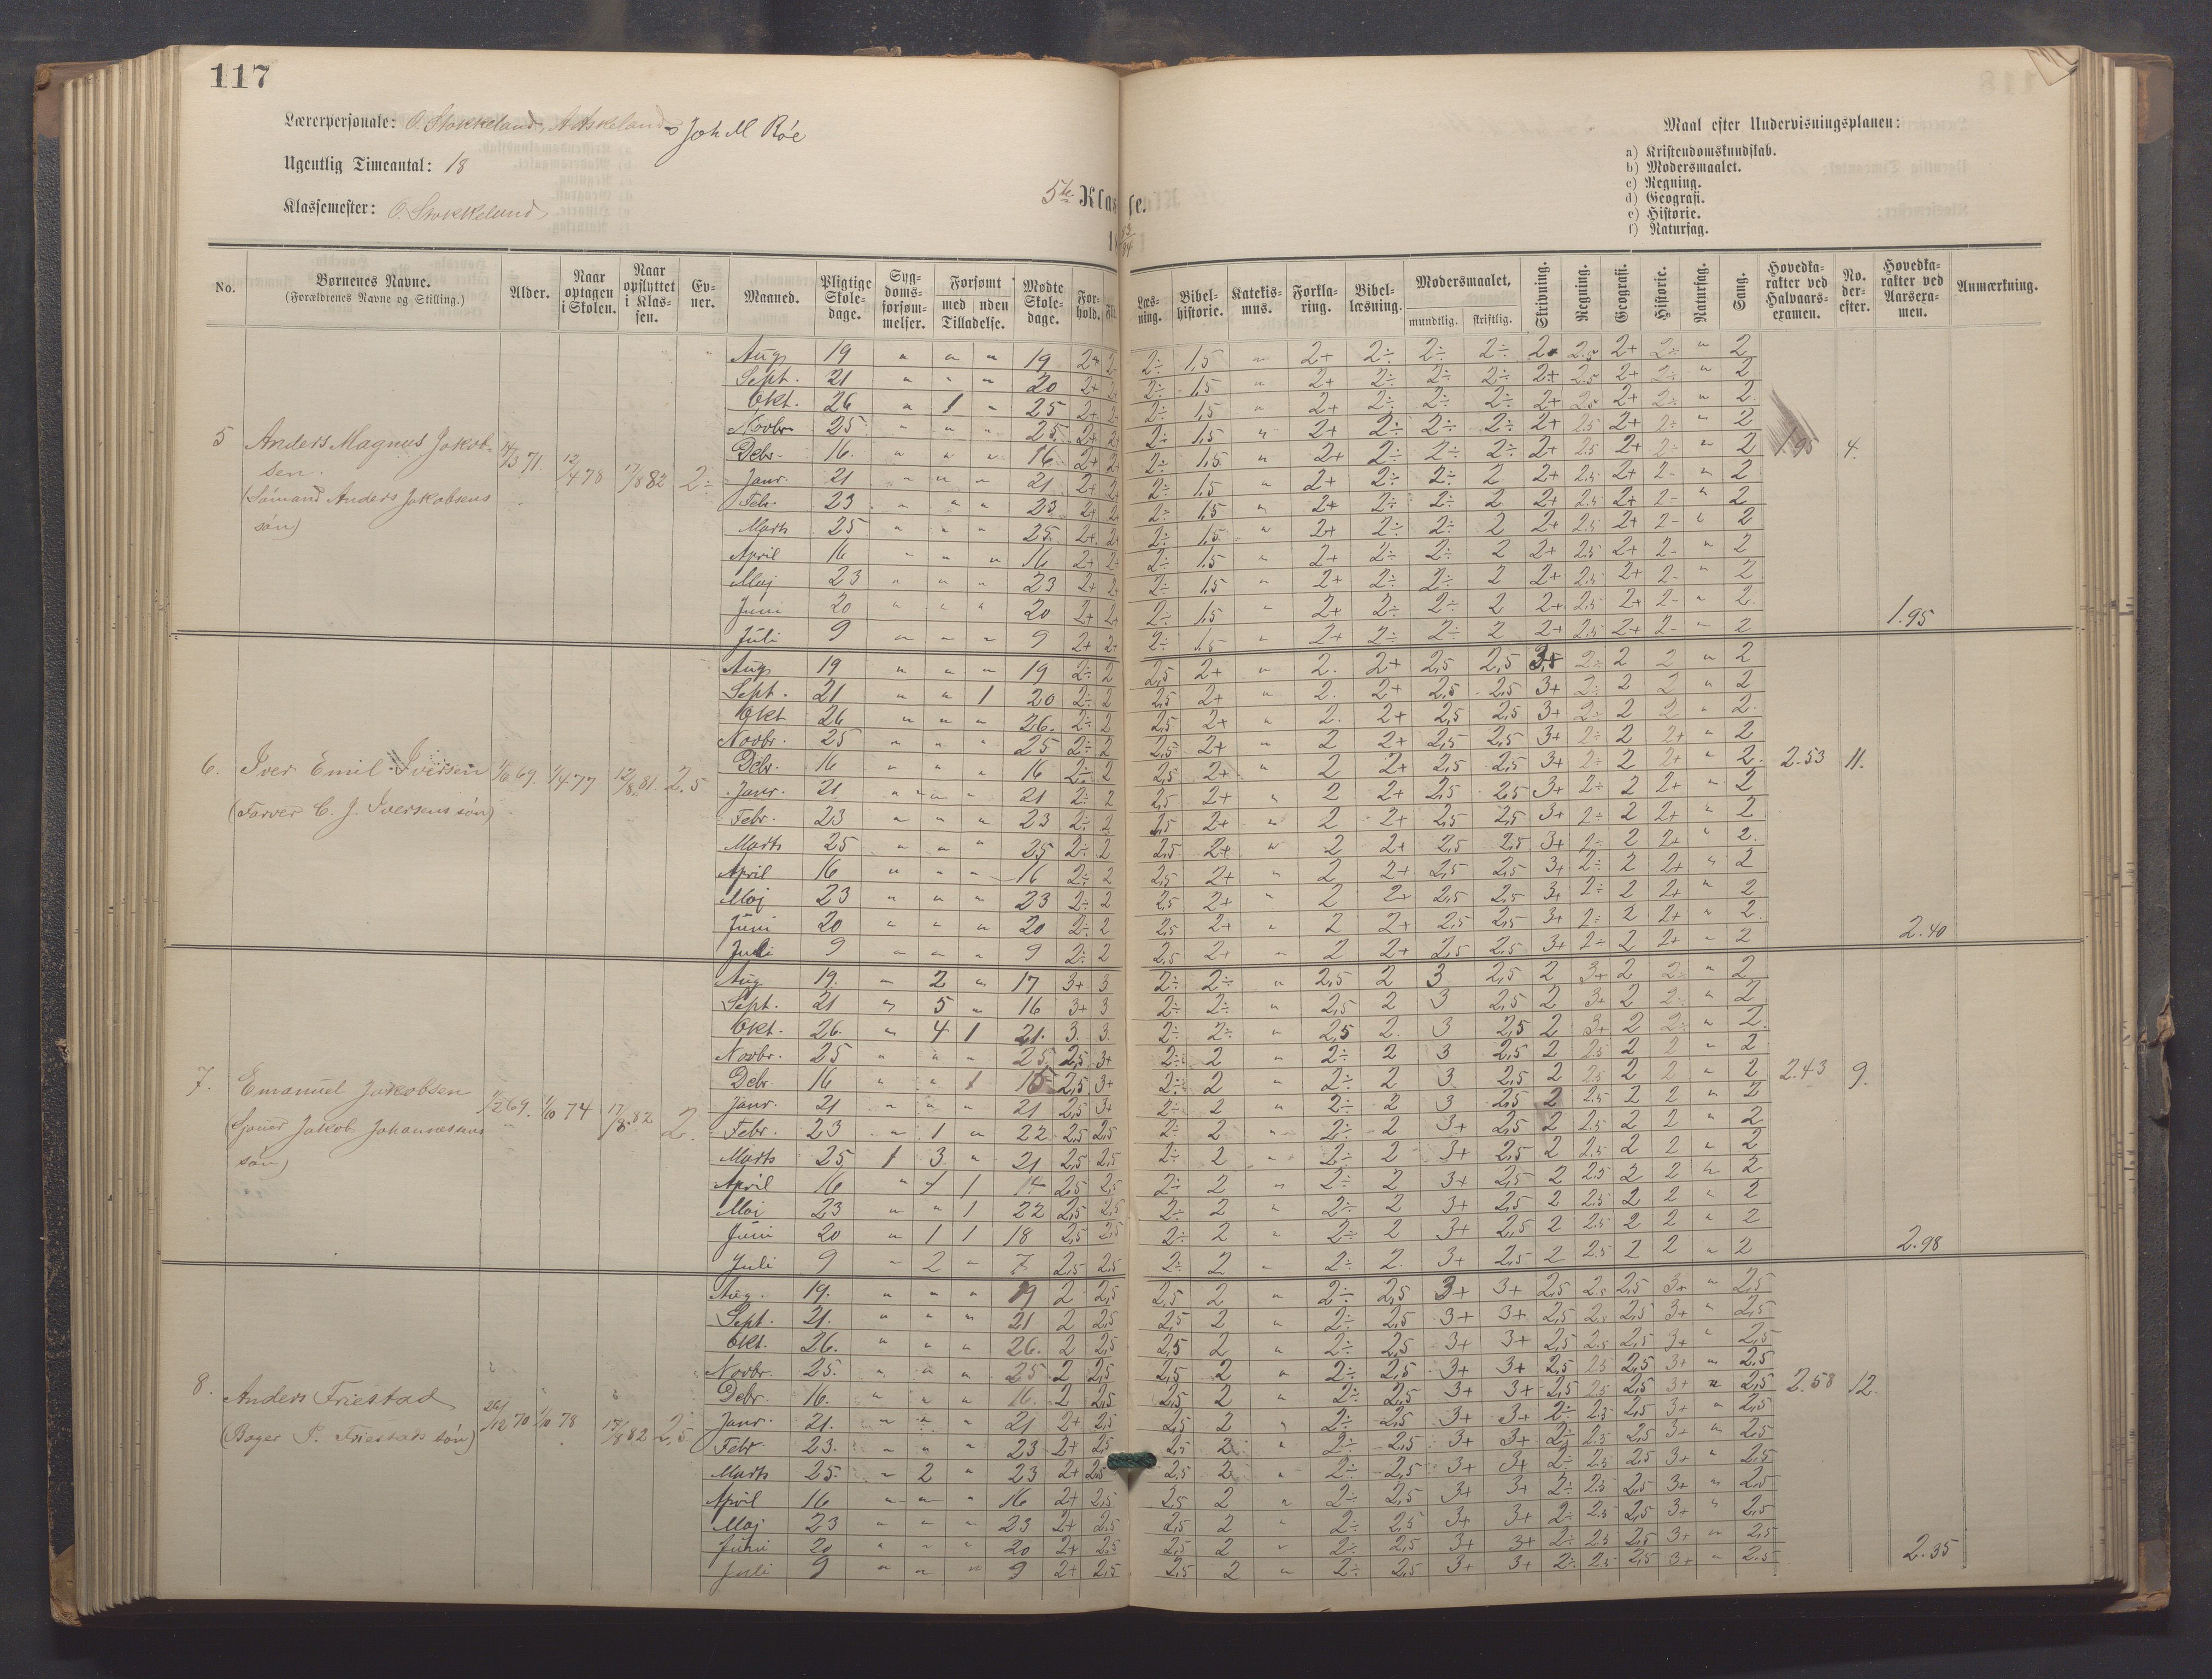 117
Lærerpersonale: O. Stokkeland, A. Askeland, Joh M Röe
Ugentlig Timeantal: 18
Klassemester: O. Stokkeland
5te Klasse.
1883/84
Maal efter Undervisningsplanen:
a) Kristendomskundskab.
b) Modersmaalet.
c) Regning.
d) Geografi.
e) Historie.
f) Naturfag.
No. Børnenes Navne. (Forældrenes Navne og Stilling.) Alder. Naar optagen i Skolen. Naar opflyttet i Klassen. Evner. Maaned. Pligtige Skoledage. Sygdomsforsømmelser. Forsømt med uden Tilladelse. Mødte Skoledage. Forhold. Læsning. Bibelhistorie. Katekismus. Forklaring. Bibellæsning. Modersmaalet, mundtlig. skriftlig. Skrivning. Regning. Geografi. Historie. Naturfag. Sang. Hovedkarakter ved Halvaarsexamen. No. derefter. Hovedkarakter ved Aarsexamen. Anmærkning.
5 Anders Magnus Jakobsen.
(Sömand Anders Jakobsens sön)
71. 12/4 78 17/8 82 2÷
Aug 19 " " " 19 2+ 2÷ 1,5 " 2+ 2÷ 2÷ 2÷ 2+ 2.5 2+ 2÷ " 2
Sept. 21 " " " 20 2+ 2÷ 1,5 " 2+ 2÷ 2÷ 2÷ 2+ 2.5 2+ 2÷ " 2
Okt. 26 " 1 " 25 2+ 2÷ 1,5 " 2+ 2÷ 2÷ 2÷ 2+ 2.5 2+ 2÷ " 2
Novbr. 25 " " " 25 2+ 2÷ 1,5 " 2+ 2÷ 2÷ 2÷ 2+ 2.5 2+ 2÷ " 2
Debr. 16. " " " 16 2+ 2÷ 1,5 " 2+ 2÷ 2÷ 2÷ 2+ 2.5 2+ 2÷ " 2 1.95 4.
Janr. 21 " " " 21 2+ 2÷ 1,5 " 2+ 2÷ 2÷ 2 2+ 2.5 2+ 2- " 2
Febr. 23 " " " 23 2+ 2÷ 1,5 " 2+ 2÷ 2÷ 2 2+ 2.5 2+ 2- " 2
Marts 25 " " " 25. 2+ 2÷ 1,5 " 2+ 2÷ 2÷ 2 2+ 2.5 2+ 2- " 2
April 16 " " " 16 2+ 2÷ 1.5 " 2+ 2÷ 2÷ 2 2+ 2.5 2+ 2- " 2
Maj 23 " " " 23 2+ 2÷ 1,5 " 2+ 2÷ 2÷ 2 2+ 2.5 2+ 2- " 2
Juni 20 " " " 20 2+ 2÷ 1,5 " 2+ 2÷ 2÷ 2 2+ 2.5 2+ 2- " 2. 1.95
Juli 9 " " " 9 2+ 2÷ 1,5 " 2+ 2÷ 2÷ 2 2+ 2.5 2+ 2- " 2
6. Iver Emil Iversen
(Farver C. J. Iversens sön)
1/6 69. 1/4 77 12/8 81. 2.5
Aug 19 " " " 19 2÷ 2 2,5 2+ " 2. 2+ 2,5 2,5 2÷ 2 2 " 2
Sept. 21 " " 1 20 2÷ 2 2,5 2+ " 2. 2+ 2,5 2,5 3+ 2÷ 2 2 " 2
Okt 26 " " " 26. 2÷ 2 2,5 2+ " 2. 2+ 2,5 2,5 3+ 2÷ 2 2 " 2.
Novbr. 25 " " " 25 2÷ 2 2,5 2+ " 2 2+ 2,5 2,5 3+ 2÷ 2 2+ " 2
Debr. 16 " " " 16 2÷ 2 2,5 2+ " 2 2+ 2,5 2,5 3+ 2÷ 2 2+ " 2. 2.53 11.
Janr. 21 " " " 21 2÷ 2 2,5 2+ " 2 2+ 2,5 2,5 3+ 2÷ 2 2+ " 2
Febr. 23 " " " 23 2÷ 2 2,5 2+ " 2 2+ 2,5 2,5 3+ 2÷ 2 2+ " 2
Marts 25 " " " 25 2÷ 2 2,5 2+ " 2 2+ 2,5 2,5 3+ 2÷ 2 2+ " 2.
April 16 " " " 16 2÷ 2 2,5 2+ " 2 2+ 2,5 2,5 3+ 2÷ 2 2+ " 2
Maj 23 " " " 23 2÷ 2 2,5 2+ " 2 2+ 2,5 2,5 3+ 2÷ 2 2+ " 2
Juni 20 " " " 20 2÷ 2 2,5 2+ " 2 2+ 2,5 2,5 3+ 2÷ 2 2+ " 2. 2.40
Juli 9 " " " 9 2÷ 2 2,5 2+ " 2 2+ 2,5 2,5 3+ 2÷ 2 2+ " 2
7. Emanuel Jakobsen
(Jakob Johannesens sön)
1/2 69. 1/10 74 17/8 82 2.
Aug 19. " 2 " 17 3+ 3 2÷ 2÷ " 2,5 2 3 2,5 2 3+ 2 2÷ " 2
Sept. 21 " 5 " 16 3+ 3 2÷ 2÷ " 2,5 2 3 2,5 2 3+ 2 2÷ " 2
Okt. 26. " 4 1 21. 3. 3. 2÷ 2÷ " 2,5 2. 3 2,5 2 3+ 2 2÷ " 2.
Novbr. 25 " " " 25 2,5 3+ 2÷ 2 " 2÷ 2 3 2,5 2 2.5 2 2 " 2
Debr. 16 " " 1 15 2,5 3+ 2÷ 2 " 2÷ 2 3 2,5 2 2.5 2 2 " 2 2.43 9.
Janr. 21 " " " 21 2,5 3+ 2÷ 2 " 2÷ 2 3 2,5 2 2.5 2 2 " 2
Febr. 23 " 1 " 22 2,5 2,5 2÷ 2 " 2÷ 2 3+ 2,5 2 2.5 2 2 " 2
Marts 25 1 3 " 21 2,5 2,5 2÷ 2 " 2÷ 2 3+ 2,5 2 2.5 2 2 " 2
April 16 " 1 1 14 2,5 2,5 2÷ 2 " 2÷ 2 3+ 2,5 2 2.5 2 2 " 2
Maj 23 " " 1 22 2,5 2,5 2÷ 2 " 2÷ 2 3+ 2,5 2 2.5 2 2 " 2
Juni 20 " 1 1 18 2,5 2,5 2÷ 2 " 2÷ 2 3+ 2,5 2 2.5 2 2 " 2 2.98
Juli 9 " 2 " 7 2,5 2,5 2÷ 2 " 2÷ 2. 3+ 2,5 2 2.5 2 2 " 2
8. Anders Friestad
(Bager P. Friestads sön)
26/12 70 1/10 78 17/8 82 2,5
Aug. 19. " " " 19 2 2,5 2,5 2 " 2÷ 2,5 3+ 3+ 2,5 2.5 2,5 3+ " 2,5
Sept. 21. " " " 21 2 2,5 2,5 2 " 2÷ 2,5 3+ 3+ 2,5 2.5 2,5 3+ " 2,5
Okt. 26. " " " 26. 2 2,5 2,5 2 " 2÷ 2,5 3+ 3+ 2,5 2.5 2,5 3+ " 2,5
Novbr. 25. " " " 25 2 2,5 2,5 2 " 2÷ 2,5 3+ 3+ 2,5 2.5 2,5 3+ " 2,5
Debr. 16. " " " 16. 2 2,5 2,5 2 " 2÷ 2,5 3+ 3+ 2,5 2.5 2,5 3+ " 2,5 2.58 12.
Janr. 21. " " " 21 2+ 2,5 2,5 2 " 2÷ 2,5 3+ 3+ 2÷ 2.5 2,5 3+ " 2,5
Febr 23. " " " 23 2+ 2,5 2,5 2 " 2÷ 2,5 3+ 3+ 2÷ 2.5 2,5 3+ " 2,5
Marts 25. " 2 " 23 2+ 2,5 2,5 2 " 2÷ 2,5 3+ 3+ 2÷ 2.5 2,5 3+ " 2,5
April 16 " " " 16 2+ 2,5 2,5 2 " 2÷ 2,5 3+ 3+ 2÷ 2.5 2,5 3+ " 2,5
Maj 23 " " " 23 2+ 2,5 2,5 2 " 2÷ 2,5 3+ 3+ 2÷ 2.5 2,5 3+ " 2,5
Juni 20 " " " 20 2+ 2,5 2,5 2 " 2÷ 2,5 3+ 3+ 2÷ 2.5 2,5 3+ " 2,5 2.35
Juli 9 " " " 9 2+ 2,5 2,5 2 " 2÷ 2,5 3+ 3+ 2÷ 2.5 2,5 3+ " 2,5